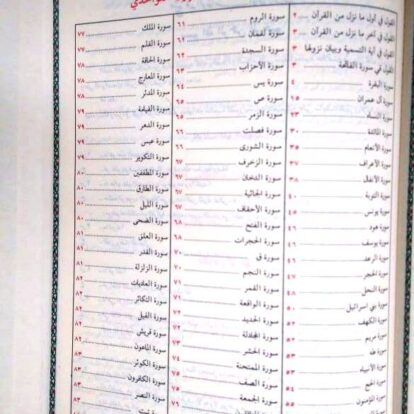 القول في أول ما نزل من القرآن ٢
القول في آخر ما نزل من القرآن ٣
القول في آية التسمية وبيان نزولها ٣
القول في سورة الفاتحة ٣
سورة البقرة ٤
سورة آل عمران ١٥
سورة النساء ٢٣
سورة المائدة ٣٠
سورة الأنعام ٣٥
سورة الأعراف ٣٧
سورة الأنفال ٣٨
سورة التوبة ٤٠
سورة يونس ٤٥
سورة هود ٤٦
سورة يوسف ٤٦
سورة الرعد ٤٦
سورة الحجر ٤٧
سورة النحل ٤٨
سورة بني اسرائيل ٥٠
سورة الكهف ٥٢
سورة مريم ٥٢
سورة طه ٥٣
سورة الأنبياء ٥٣
سورة الحج ٥٤
سورة المؤمنون ٥٥
سورة الروم ٦١
سورة لقمان ٦١
سورة السجدة ٦٢
سورة الأحزاب ٦٣
سورة يس ٦٤
سورة ص ٦٥
سورة الزمر ٦٥
سورة فصلت ٦٦
سورة الشورى ٦٦
سورة الزخرف ٦٧
سورة الدخان ٦٧
سورة الجاثية ٦٧
سورة الأحقاف ٦٧
سورة الفتح ٦٨
سورة الحجرات ٦٨
سورة ق ٧٠
سورة النجم ٧١
سورة القمر ٧١
سورة الواقعة ٧١
سورة الحديد ٧٢
سورة المجادلة ٧٢
سورة الحشر ٧٣
سورة الممتحنة ٧٤
سورة الصف ٧٥
سورة الجمعة ٧٦
سورة الملك ٧٧
سورة القلم ٧٧
سورة الحاقة ٧٨
سورة المعارج ٧٨
سورة المدثر ٧٨
سورة القيامة ٧٩
سورة الدهر ٧٩
سورة عبس ٧٩
سورة التكوير ٧٩
سورة المطففين ٨٠
سورة الطارق ٨٠
سورة الليل ٨٠
سورة الضحى ٨١
سورة العلق ٨١
سورة القدر ٨١
سورة الزلزلة ٨١
سورة العاديات ٨٢
سورة التكاثر ٨٢
سورة الفيل ٨٢
سورة قريش ٨٢
سورة الماعون ٨٢
سورة الكوثر ٨٣
سورة الكافرون ٨٣
سورة النصر ٨٣